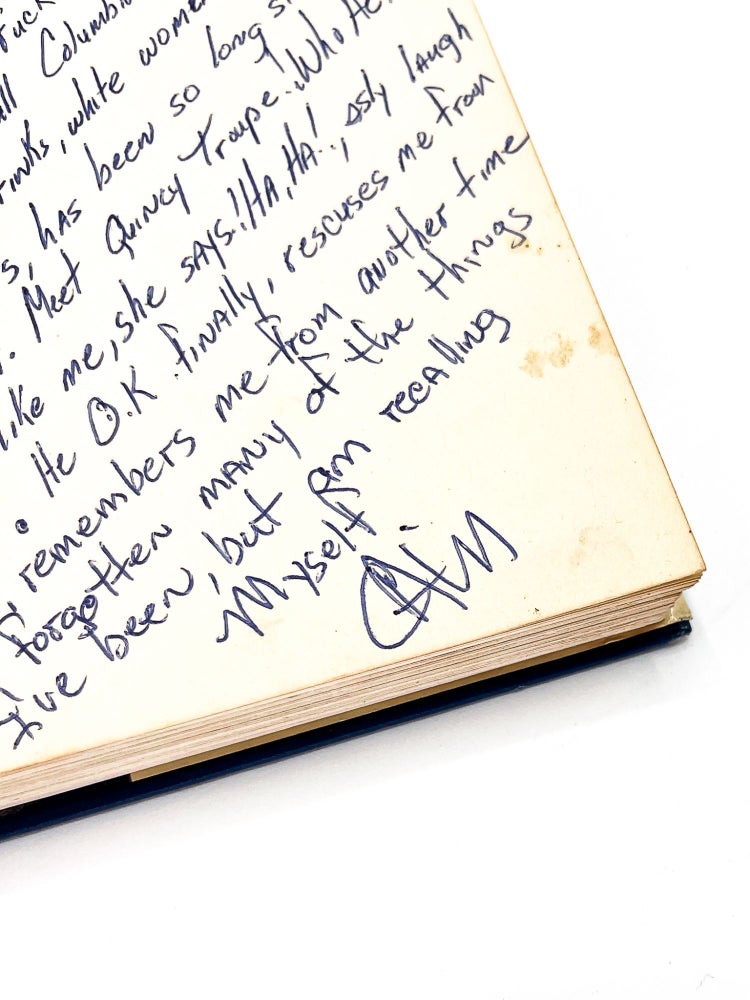 all Columbia
rinks, white women
s, has been so long s
. Meet Quincy Troupe. Who He
like me, she says! HA, HA!, sly laugh
. He O.K. finally, rescues me from
remembers me from another time
forgotten many of the things
I've been, but am recalling
Myself